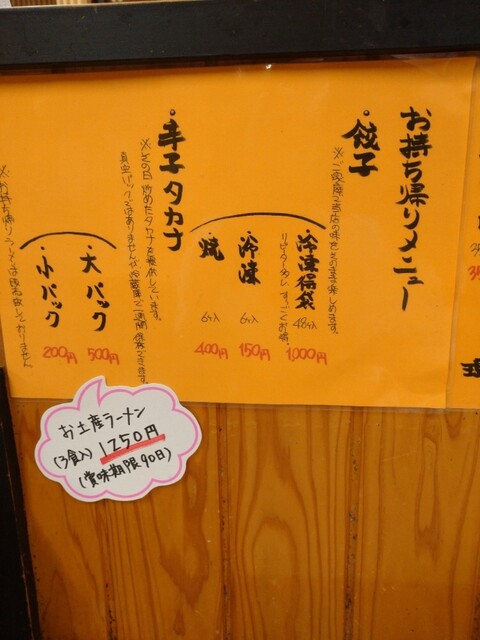 お持ち帰りメニュー
・餃子
※ご家庭で当店の味をそのまま楽しめます。
・冷凍福袋 48ヶ入 1,000円
リピーター多し すっごくお得。
・冷凍 6ヶ入 150円
・焼 6ヶ入 400円
・辛子タカナ
※その日炒めたタカナを提供しています。
真空パックではありませんが冷蔵庫で一週間保存できます。
・大パック 500円
・小パック 200円
※お持ち帰りラーメンは販売致しておりません
お土産ラーメン
(3食入) 1250円
(賞味期限90日)